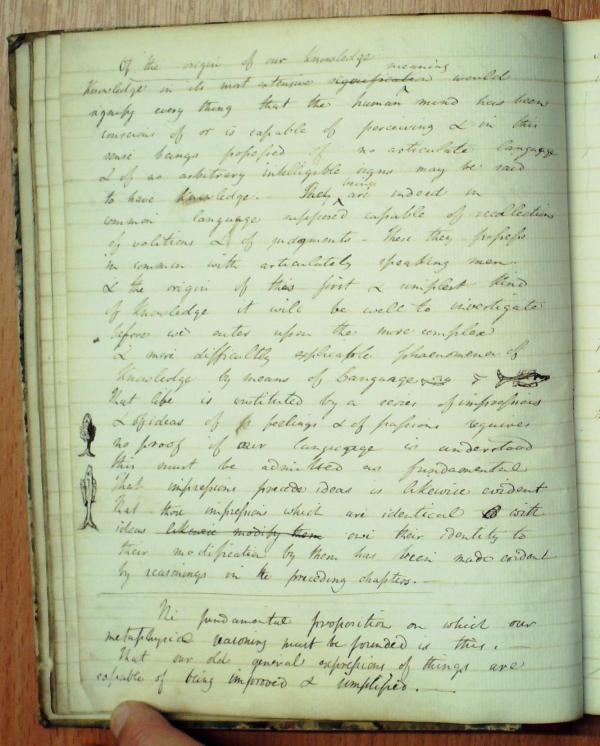 Of the origin of our Knowledge
Knowledge in its most extensive signification meaning would
signify every thing that the human mind has been
conscious of or is capable of perceiving & in this
sense beings possessed of no articulate language
& of no arbitrary intelligible signs may be said
to have Knowledge. - They beings are indeed in
common language supposed capable of recollections
of volitions & of judgments - These they possess
in common with articulately speaking men
& the origin of this first & simplest kind
of Knowledge it will be well to investigate
before we enter upon the more complex
& more difficultly explicable phaenomenon of
Knowledge by means of Language
That life is constituted by a series of impressions
& of ideas of feelings & of passions requires
no proof if our language is understood
this must be admitted as fundamental
That impressions precede ideas is likewise evident
That those impressions which are identical with
ideas likewise modify them owe their identity to
their modification by them has been made evident
by reasonings in the preceding chapters. -
The fundamental proposition on which our
metaphysical reasoning must be founded is this.
That our old general expressions of things are
capable of being improved & simplified. -